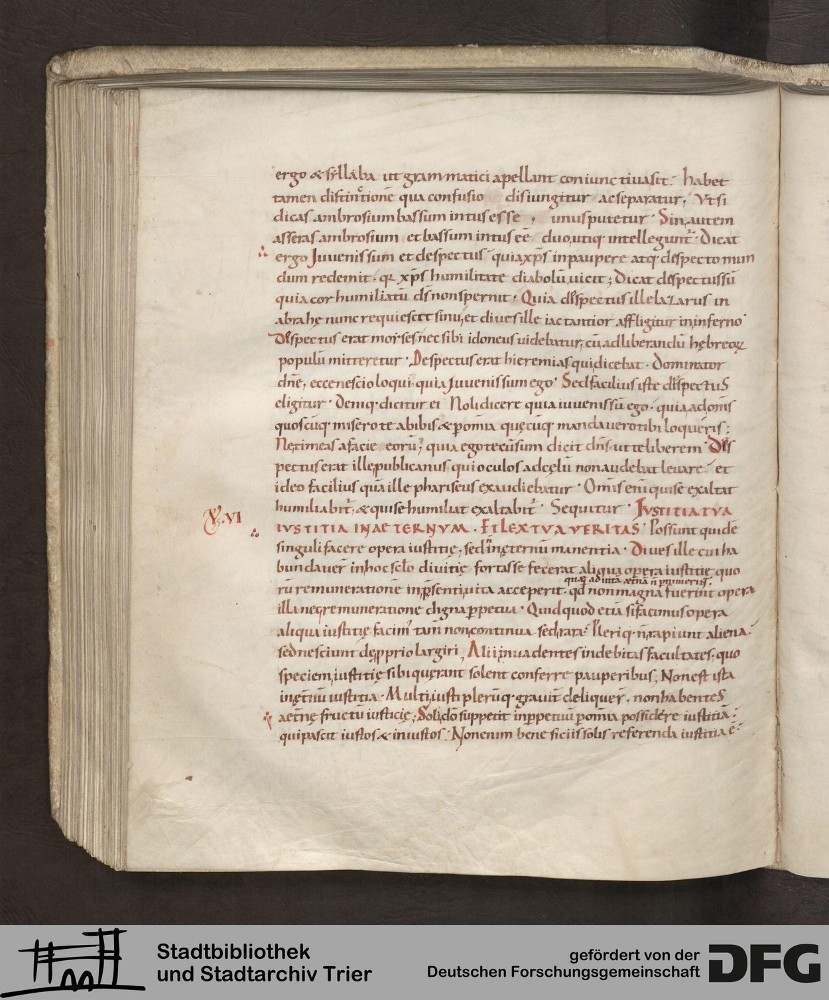 ergo & syllaba ut grammatici apellant coniunctiua sit. habet
tamen distinctionē qua confusio disiungitur ac separatur. Vt si
dicas ambrosium bassum intus esse, unus putetur. Sin autem
asseras ambrosium et bassum intus eē duo utiq intelleguntr. Dicat
ergo Iuuenis sum et despectus quia xps in paupere atq despecto mun
dum redemit. q xps humilitate diabolū uicit; Dicat despectus sū
quia cor humiliatū ds non spernit. Quia despectus ille lazarus in
abrahę nunc requiescit sinu, et diues ille iactantior affligitur in inferno
Despectus erat moyses nec sibi idoneus uidebatur, cū ad liberandū hebreoꝝ
populū mitteretur. Despectus erat hieremias qui dicebat. Dominator
dne, ecce nescio loqui quia Iuuenis sum ego. Sed facilius iste despectus
eligitur. Deniq dicitur ei Noli dicere quia iuuenis sū ego. quia ad omīs
quoscūq misero te abibis & p omia quęcūq mandauero tibi loqueris;
Ne timeas a facie eorū, quia ego tecū sum dicit dns ut te liberem. Des
pectus erat ille publicanus qui oculos ad cęlū non audebat leuare. et
ideo facilius quā ille phariseus exaudiebatur. Omīs enī qui se exaltat
humiliabitr, & qui se humiliat exaltabitr. Sequitur. IVSTITIA TVA
XVI
IVSTITIA IN AETERNVM. ET LEX TVA VERITAS. Possunt quidē
singuli facere opera iustitię, sed in ęternū manentia. Diues ille cui ha
bundauer in hoc sclo diuitię fortasse fecerat aliqua opera iustitię quo
quę ad uitā ętnā
rū remunerationē in psenti uita acceperit. qd non magna fuerint opera
illa nec remuneratione digna ppetua. Quid quod etiā si facimus opera
aliqua iustitię facim tam non continua sed rara. Pleriq rapiunt aliena.
sed nesciunt de pprio largiri, Alii puadentes indebitas facultates, quo
speciem iustitię sibi quęrant solent conferre pauperibus, Non est ista
in ęternū iustitia. Multi iusti plerūq grauit deliquer. non habentes
aetnę fructū iusticię; Soli dō suppetit in ppetuū p omia possidere iustitiā.
qui pascit iustos & iniustos. Non enim bene ficiis solis referenda iustitia ē.
Stadtbibliothek
und Stadtarchiv Trier
gefördert von der
Deutschen Forschungsgemeinschaft
DFG